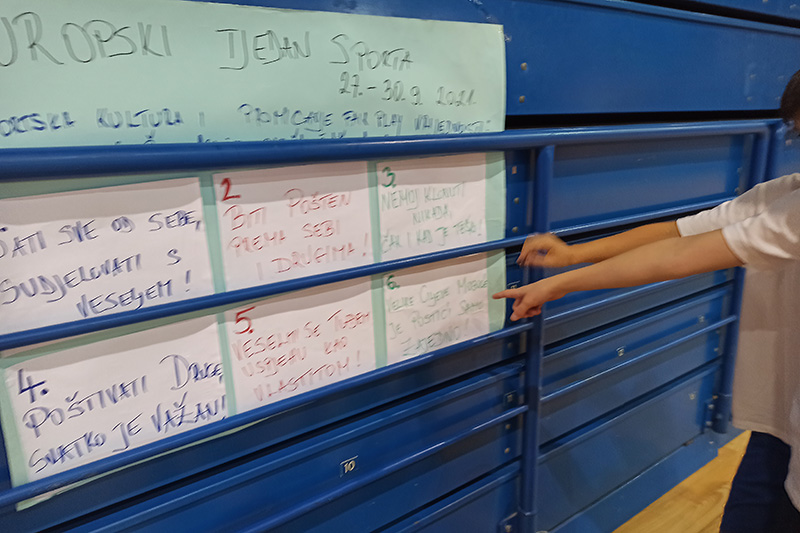 UROPSKI TJEDAN SPORTA
27.-30.9. 2021.
ORTSKA KULTURA I PROMICANJE FAIR PLAY
DATI SVE OD SEBE,
SUDJELOVATI S
VESELJEM!
2.
BITI POŠTEN
PREMA SEBI
I DRUGIMA!
3.
NEMOJ KLONUTI
NIKADA,
ČAK I KAD JE TEŠKO!
4.
POŠTIVATI DRUGE,
SVATKO JE VAŽAN!
5.
VESELITI SE TUĐEM
USPJEHU KAO
VLASTITOM!
6.
VELIKE CILJEVE MOGUĆE
JE POSTIĆI SAMO
ZAJEDNO!
10